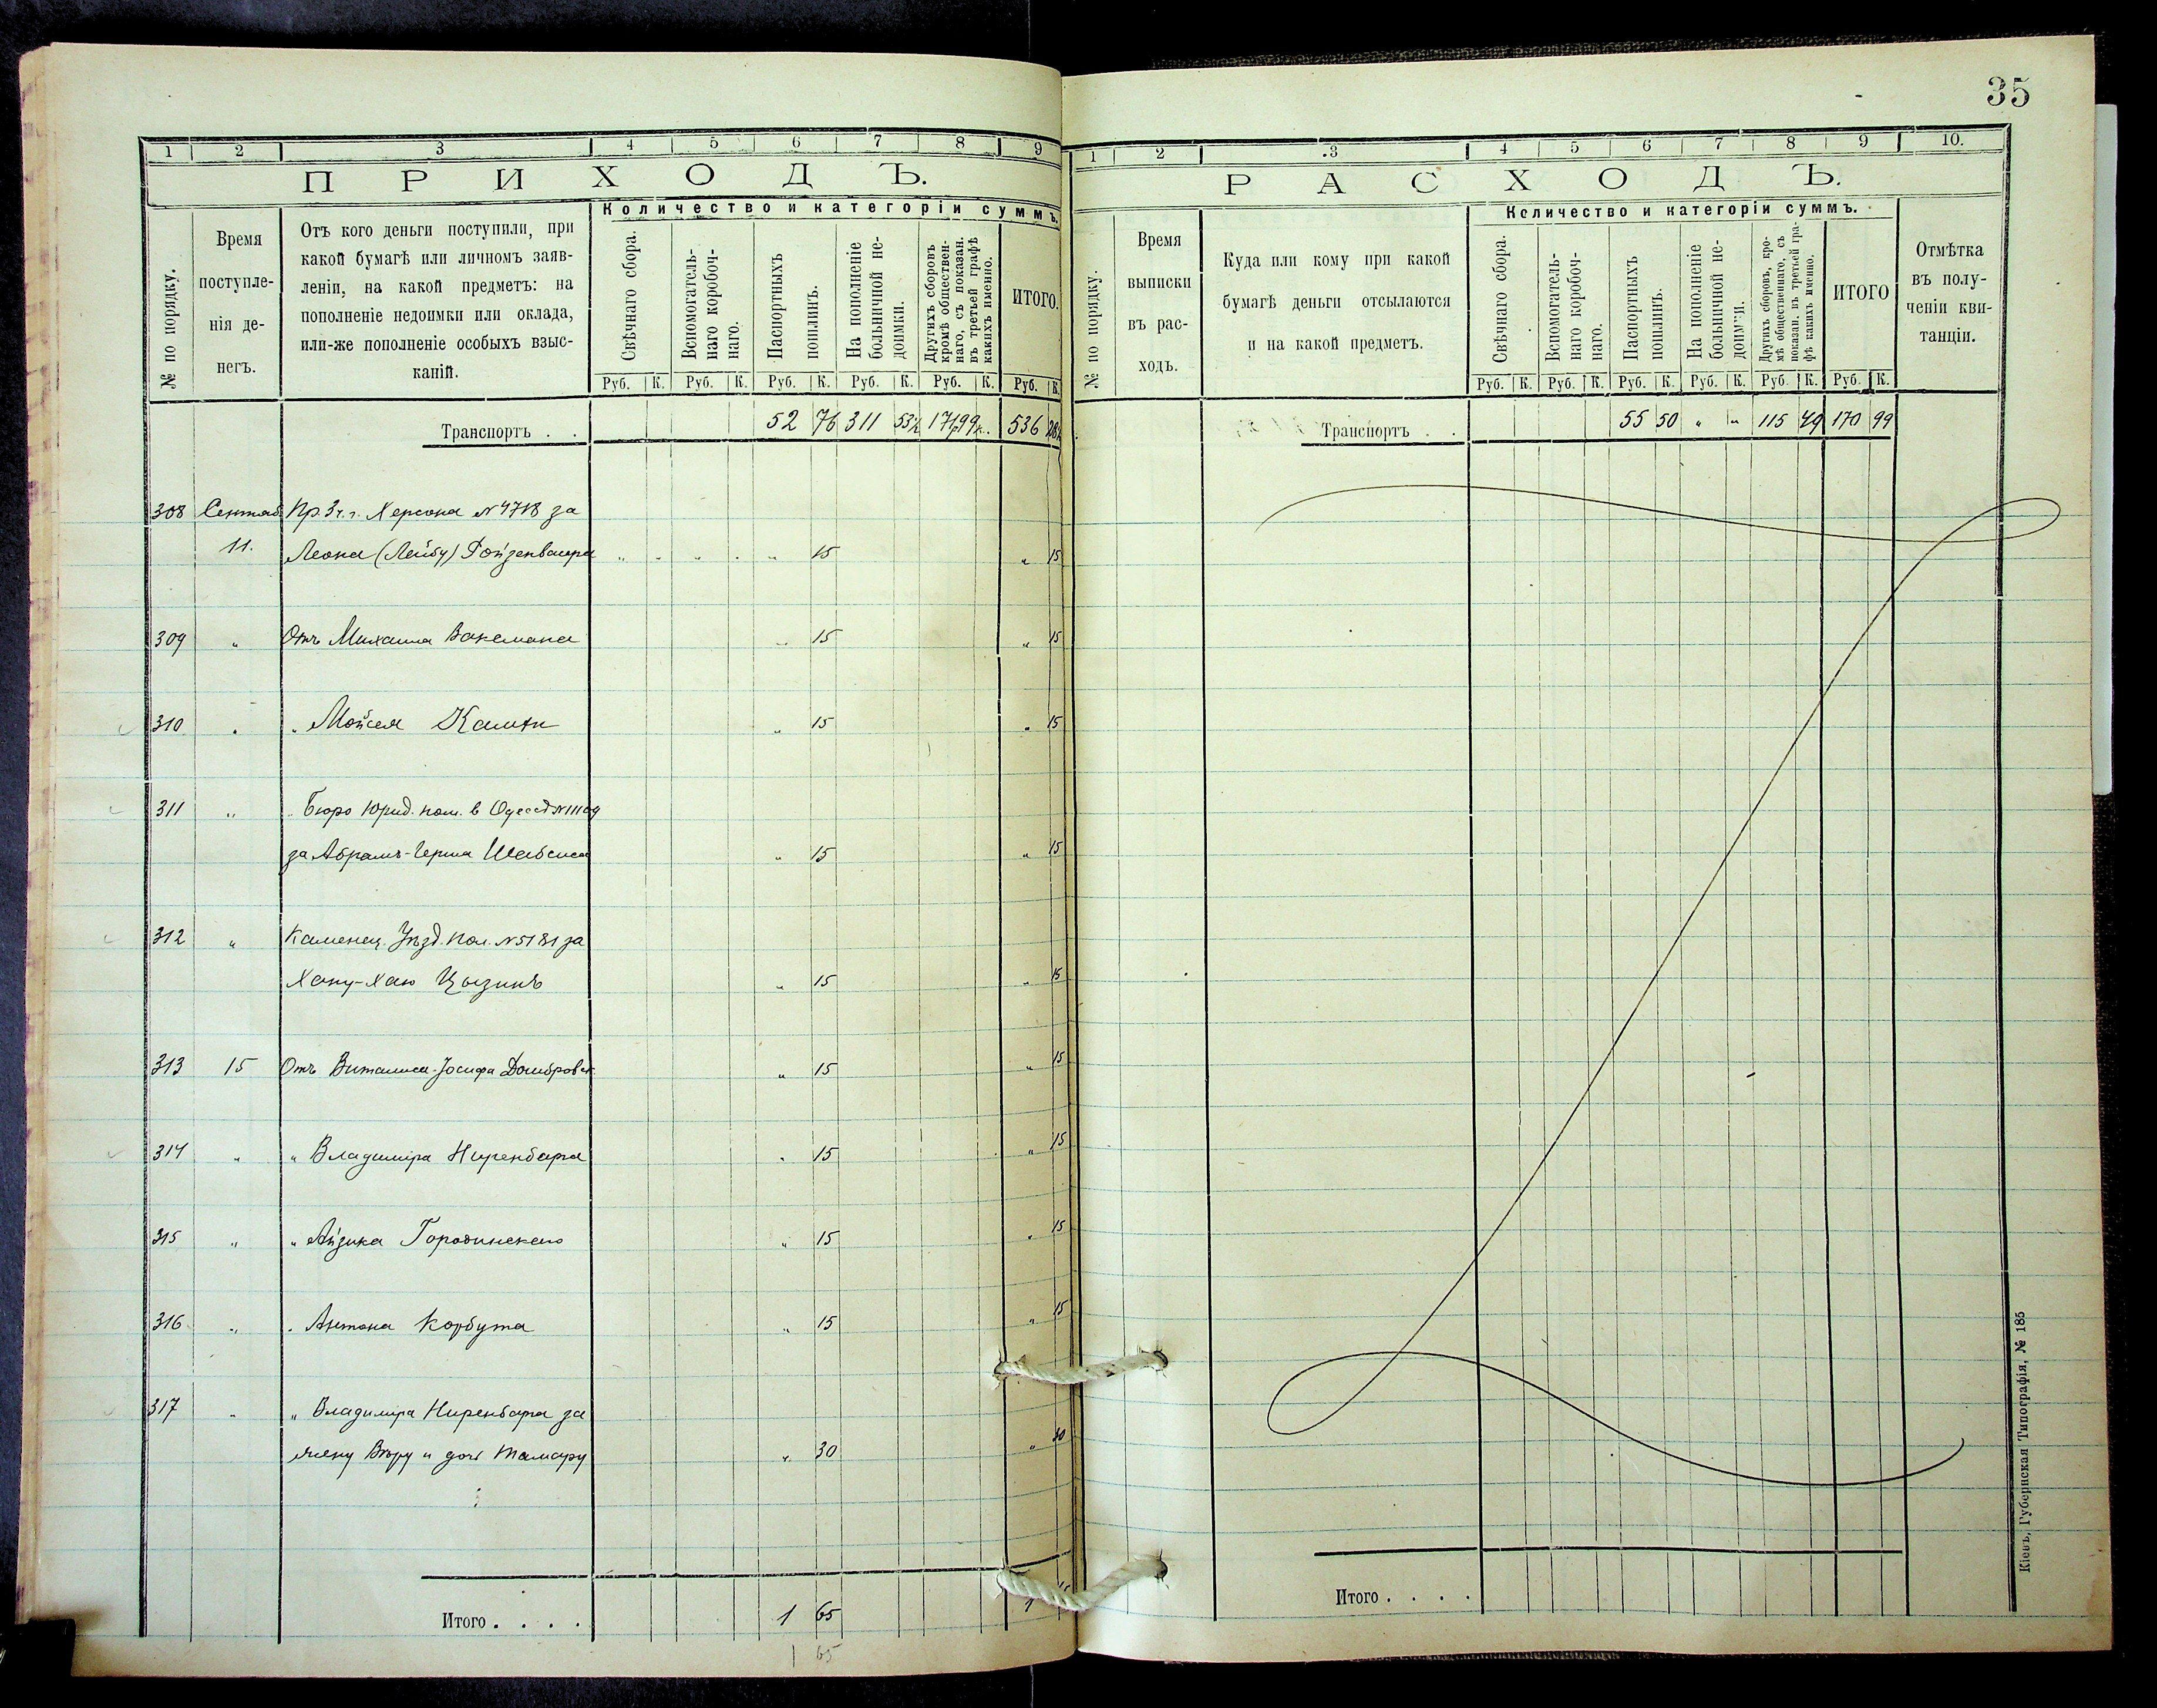 35
1 2 3 4 5 6 7 8 9
ПРИХОДЪ.
Количество и категоріи суммъ.
№ по порядку.
Время
поступле-
нія де-
негъ.
Отъ кого деньги поступили, при
какой бумагѣ или личномъ заяв-
леніи, на какой предметъ: на
пополненіе недоимки или оклада,
или-же пополненіе особыхъ взыс-
каній.
Свѣчнаго сбора.
Вспомогатель-
наго коробоч-
наго.
Паспортныхъ
пошлинъ.
На пополненіе
больничной не-
доимки.
Другихъ сборовъ
кромѣ обществен-
наго, съ показан.
въ третьей графѣ
какихъ именно.
ИТОГО.
Руб. К. Руб. К. Руб. К. Руб. К. Руб. К. Руб. К.
Транспортъ . . 52 76 311 53½ 171 99 к. 536 28½
308 Сентяб. Пр. 3 ч. г. Херсона № 4718 за
11. Леона (Лейбу) Гойзенвассера " " " " " 15 " 15
309 " Отъ Михаила Ваксмана " 15 " 15
310 " " Мойсея " 15 " 15
311 " " Бюро Юрид. пом. в Одессѣ № 11109
за Абрамъ-Герша Шабсиса " 15 " 15
312 " Каменец. Уѣзд. Пол. № 5181 за
Хану-Хаю Цызинъ " 15 " 15
313 15 Отъ Виталиса-Іосифа Домбровск. " 15 " 15
314 " " Владиміра Ниренберга " 15 " 15
315 " " Айзика Городинскаго " 15 " 15
316 " " Антона Корбута " 15 " 15
317 " " Владиміра Ниренберга за
жену Вѣру и дочь Тамару " 30 " 30
Итого . . . . 1 65 1
1 65
1 2 3 4 5 6 7 8 9 10.
РАСХОДЪ.
Количество и категоріи суммъ.
№ по порядку.
Время
выписки
въ рас-
ходъ.
Куда или кому при какой
бумагѣ деньги отсылаются
и на какой предметъ.
Свѣчнаго сбора.
Вспомогатель-
наго коробоч-
наго.
Паспортныхъ
пошлинъ.
На пополненіе
больничной не-
доимки.
Другихъ сборовъ, кро-
мѣ общественнаго, съ
показан. въ третьей гра-
фѣ какихъ именно.
ИТОГО
Отмѣтка
въ полу-
ченіи кви-
танціи.
Руб. К. Руб. К. Руб. К. Руб. К. Руб. К. Руб. К.
Транспортъ . . 55 50 " " 115 49 170 99
Итого . . . .
Кіевъ, Губернская Типографія, № 185